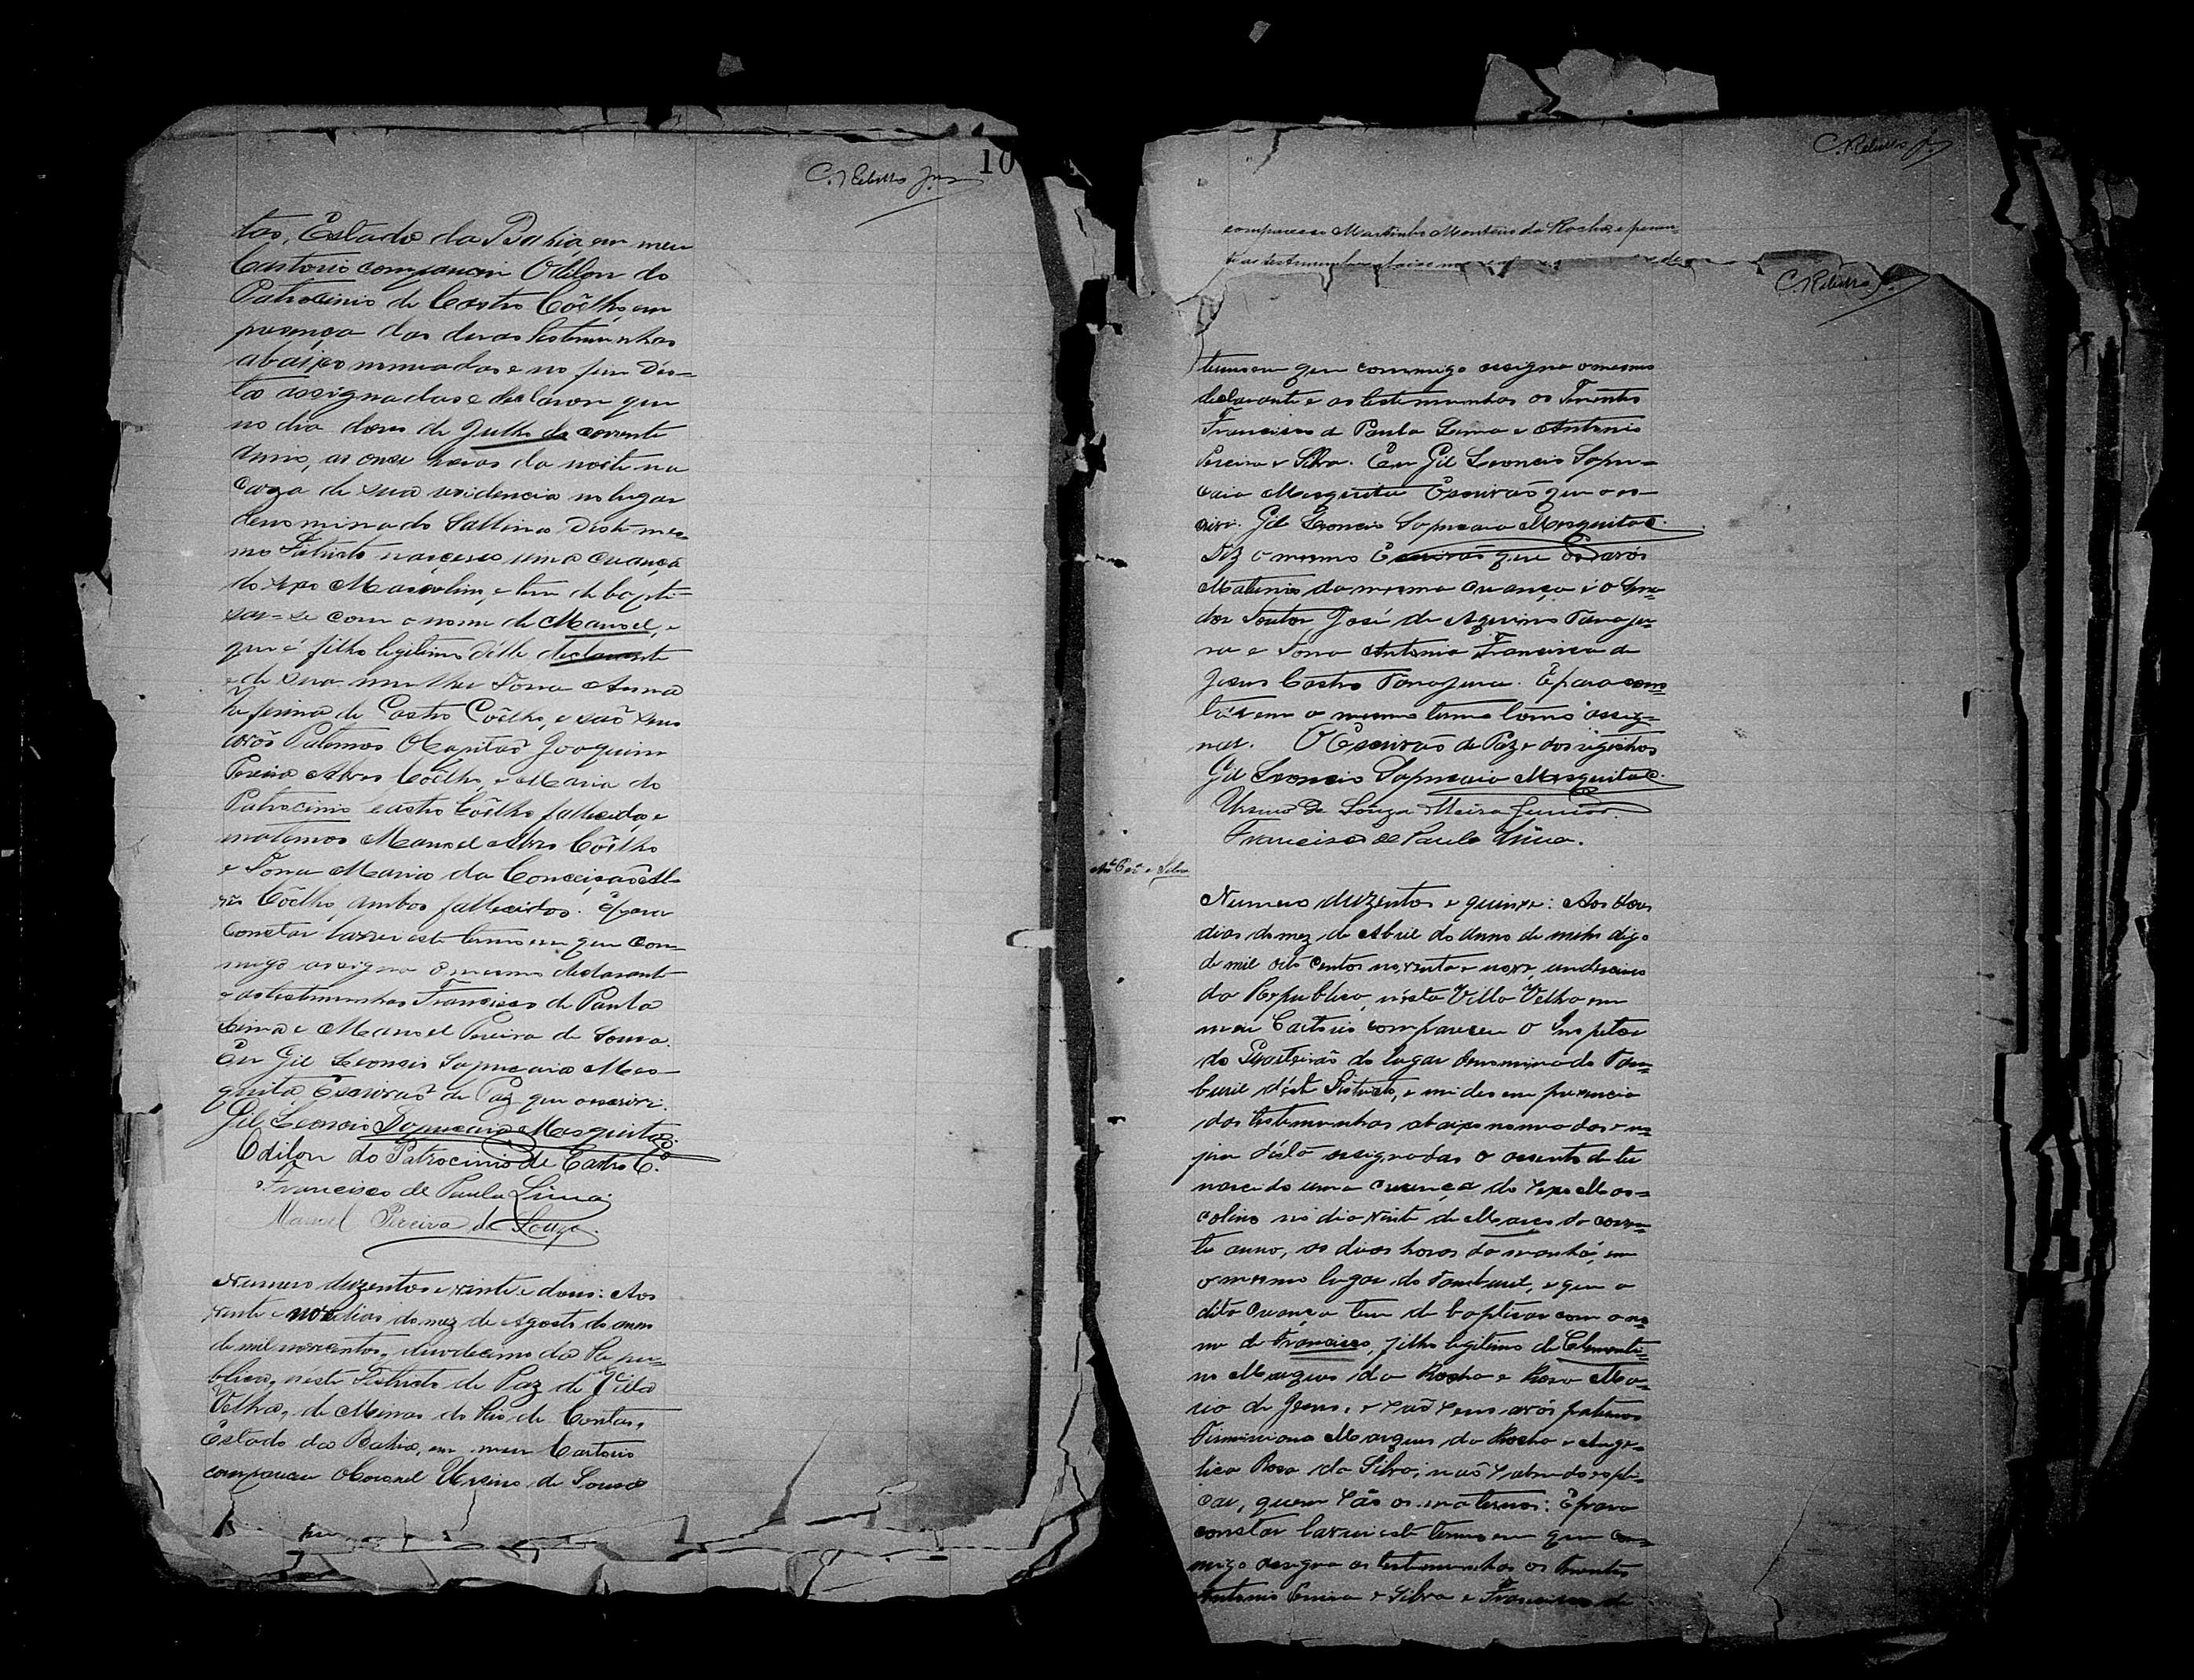 10
C. Rebello Jor
tas, Estado da Bahia em meu
Cartorio compareceu Odilon do
Patrocinio de Castro Coêlho, em
presença das duas testemunhas
abaixo nomeadas e no fim dés-
ta assignadas e declarou que
no dia dous de Julho do corrente
anno, as onze horas da noite na
caza de sua residencia no lugar
denominado Sallina déste mes-
mo Districto nasceu uma creança
do sexo Masculino, e tem de bapti-
sar-se com o nome de Manoel, e
que é filho legitimo délle declarante
e de sua mulher Dona Anna
de Castro Coêlho, e são seus
avós Paternos O Capitão Joaquim
Pereira Alves Coêlho, e Maria do
Patrocinio Castro Coêlho fallecida, e
maternos Manoel Alves Coêlho
e Dona Maria da Conceição Al-
ves Coêlho, ambos fallecidos. E para
constar lavrei este termo em que com-
migo assigna o mesmo declarante
e as testemunhas Francisco de Paula
Lima e Manoel Pereira de Souza.
Eu Gil Leoncio Sapucaia Mes-
quita, Escrivão de Paz que o escrivi.
Gil Leoncio Sapucaia Mesquita.
Odilon do Patrocinio de Castro C.º
Francisco de Paula Lima.
Manoel Pereira de Souza.
Numero duzentos e vinte e dous: Aos
vinte e nove dias do mez de Agosto do anno
de mil novecentos, duodecimo da Repu-
blica, néste Districto de Paz de Villa
Velha, de Minas do Rio de Contas,
Estado da Bahia, em meu Cartorio
compareceu O Coronel Ursino de Souza
C. Rebello Jor
compareceo Martinho Monteiro da Rocha, e peran-
te as testemunhas abaixo
C. Rebello Jor
termo em que commigo assigna o mesmo
declarante e as testemunhas os Tenentes
Francisco de Paula Lima e Antonio
Pereira e Silva. Eu Gil Leoncio Sapu-
caia Mesquita Escrivão que o es-
crivi. Gil Leoncio Sapucaia Mesquita.
Diz o mesmo Escrivão que os avós
Maternos da mesma creança é o Sena-
dor Doutor José de Aquino Tanaju-
ra e Dona Antonia Francisca de
Jesus Castro Tanajura. E para cons-
tár em o mesmo termo torno assig-
nar. O Escrivão de Paz e dos registros
Gil Leoncio Sapucaia Mesquita.
Ursino de Souza Meira Junior.
Francisco de Paula Lima.
Anto Pera e Silva
Numero duzentos e quinze: Aos dous
dias do mez de Abril do anno de mil digo
de mil oito centos noventa e nove, undecimo
da Republica, nésta Villa Velha em
meu Cartorio compareceu o Inspetor
do Quarteirão do lugar denominado Tam-
buril déste Districto, e me deu em presencia
das testemunhas abaixo nomeadas e no
fim désta assignadas o assento de ter
nascido uma creança do sexo Mas-
colino no dia vinte de Março do corren-
te anno, as duas horas da manhã, em
o mesmo lugar do Tamburil, e que a
dita creança tem de baptisar com o no-
me de Francisco, filho legitimo de Clementi-
no Marques da Rocha e Rosa Ma-
ria de Jesus, e são seus avós paternos
Marques da Rocha e Ange-
lica Rosa da Silva, não sabendo expli-
car, quem são os maternos: E para
constar lavrei este termo em que com-
migo assigna as testemunhas os tenentes
Antonio Pereira e Silva e Francisco de